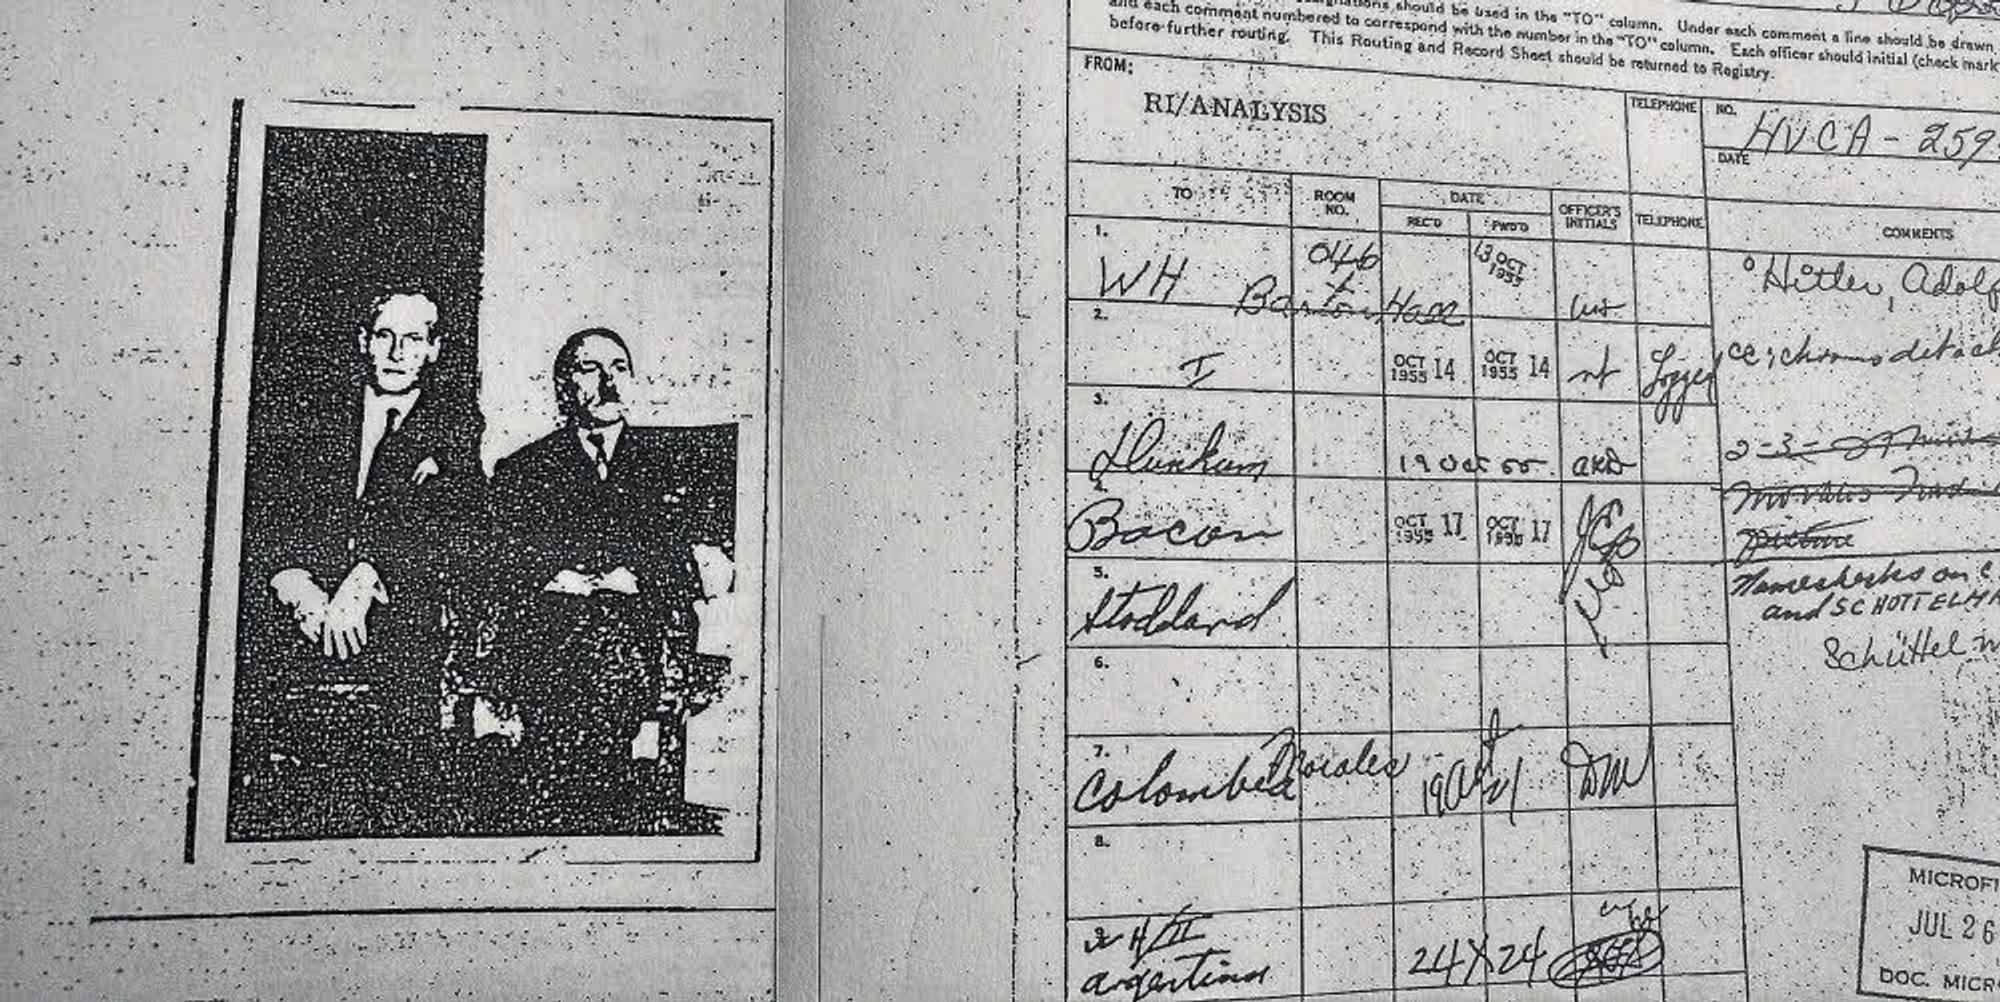 should be used in the "TO" column. Under each comment a line should be drawn
and each comment numbered to correspond with the number in the "TO" column. Each officer should initial (check mark
before further routing. This Routing and Record Sheet should be returned to Registry.
FROM:
RI/ANALYSIS
TELEPHONE
NO.
HVCA - 259
DATE
TO
ROOM NO.
DATE
REC'D
FWD'D
OFFICER'S INITIALS
TELEPHONE
COMMENTS
1.
WH
046
Barton Hall
13 OCT 1955
Hitler, Adolf
2.
I
OCT 14 1955
OCT 14 1955
cc:
3.
Dunham
19 Oct 55
AKD
2-3-
4.
Bacon
OCT 17 1955
OCT 17 1955
Picture
5.
Stoddard
Namechecks on C
and SCHOTTELMA
Schüttelm
6.
7.
Colombia
Morales
19 Oct
21
DM
8.
WH/III
Argentina
24 X 24
MICROFI
JUL 26
DOC. MICR